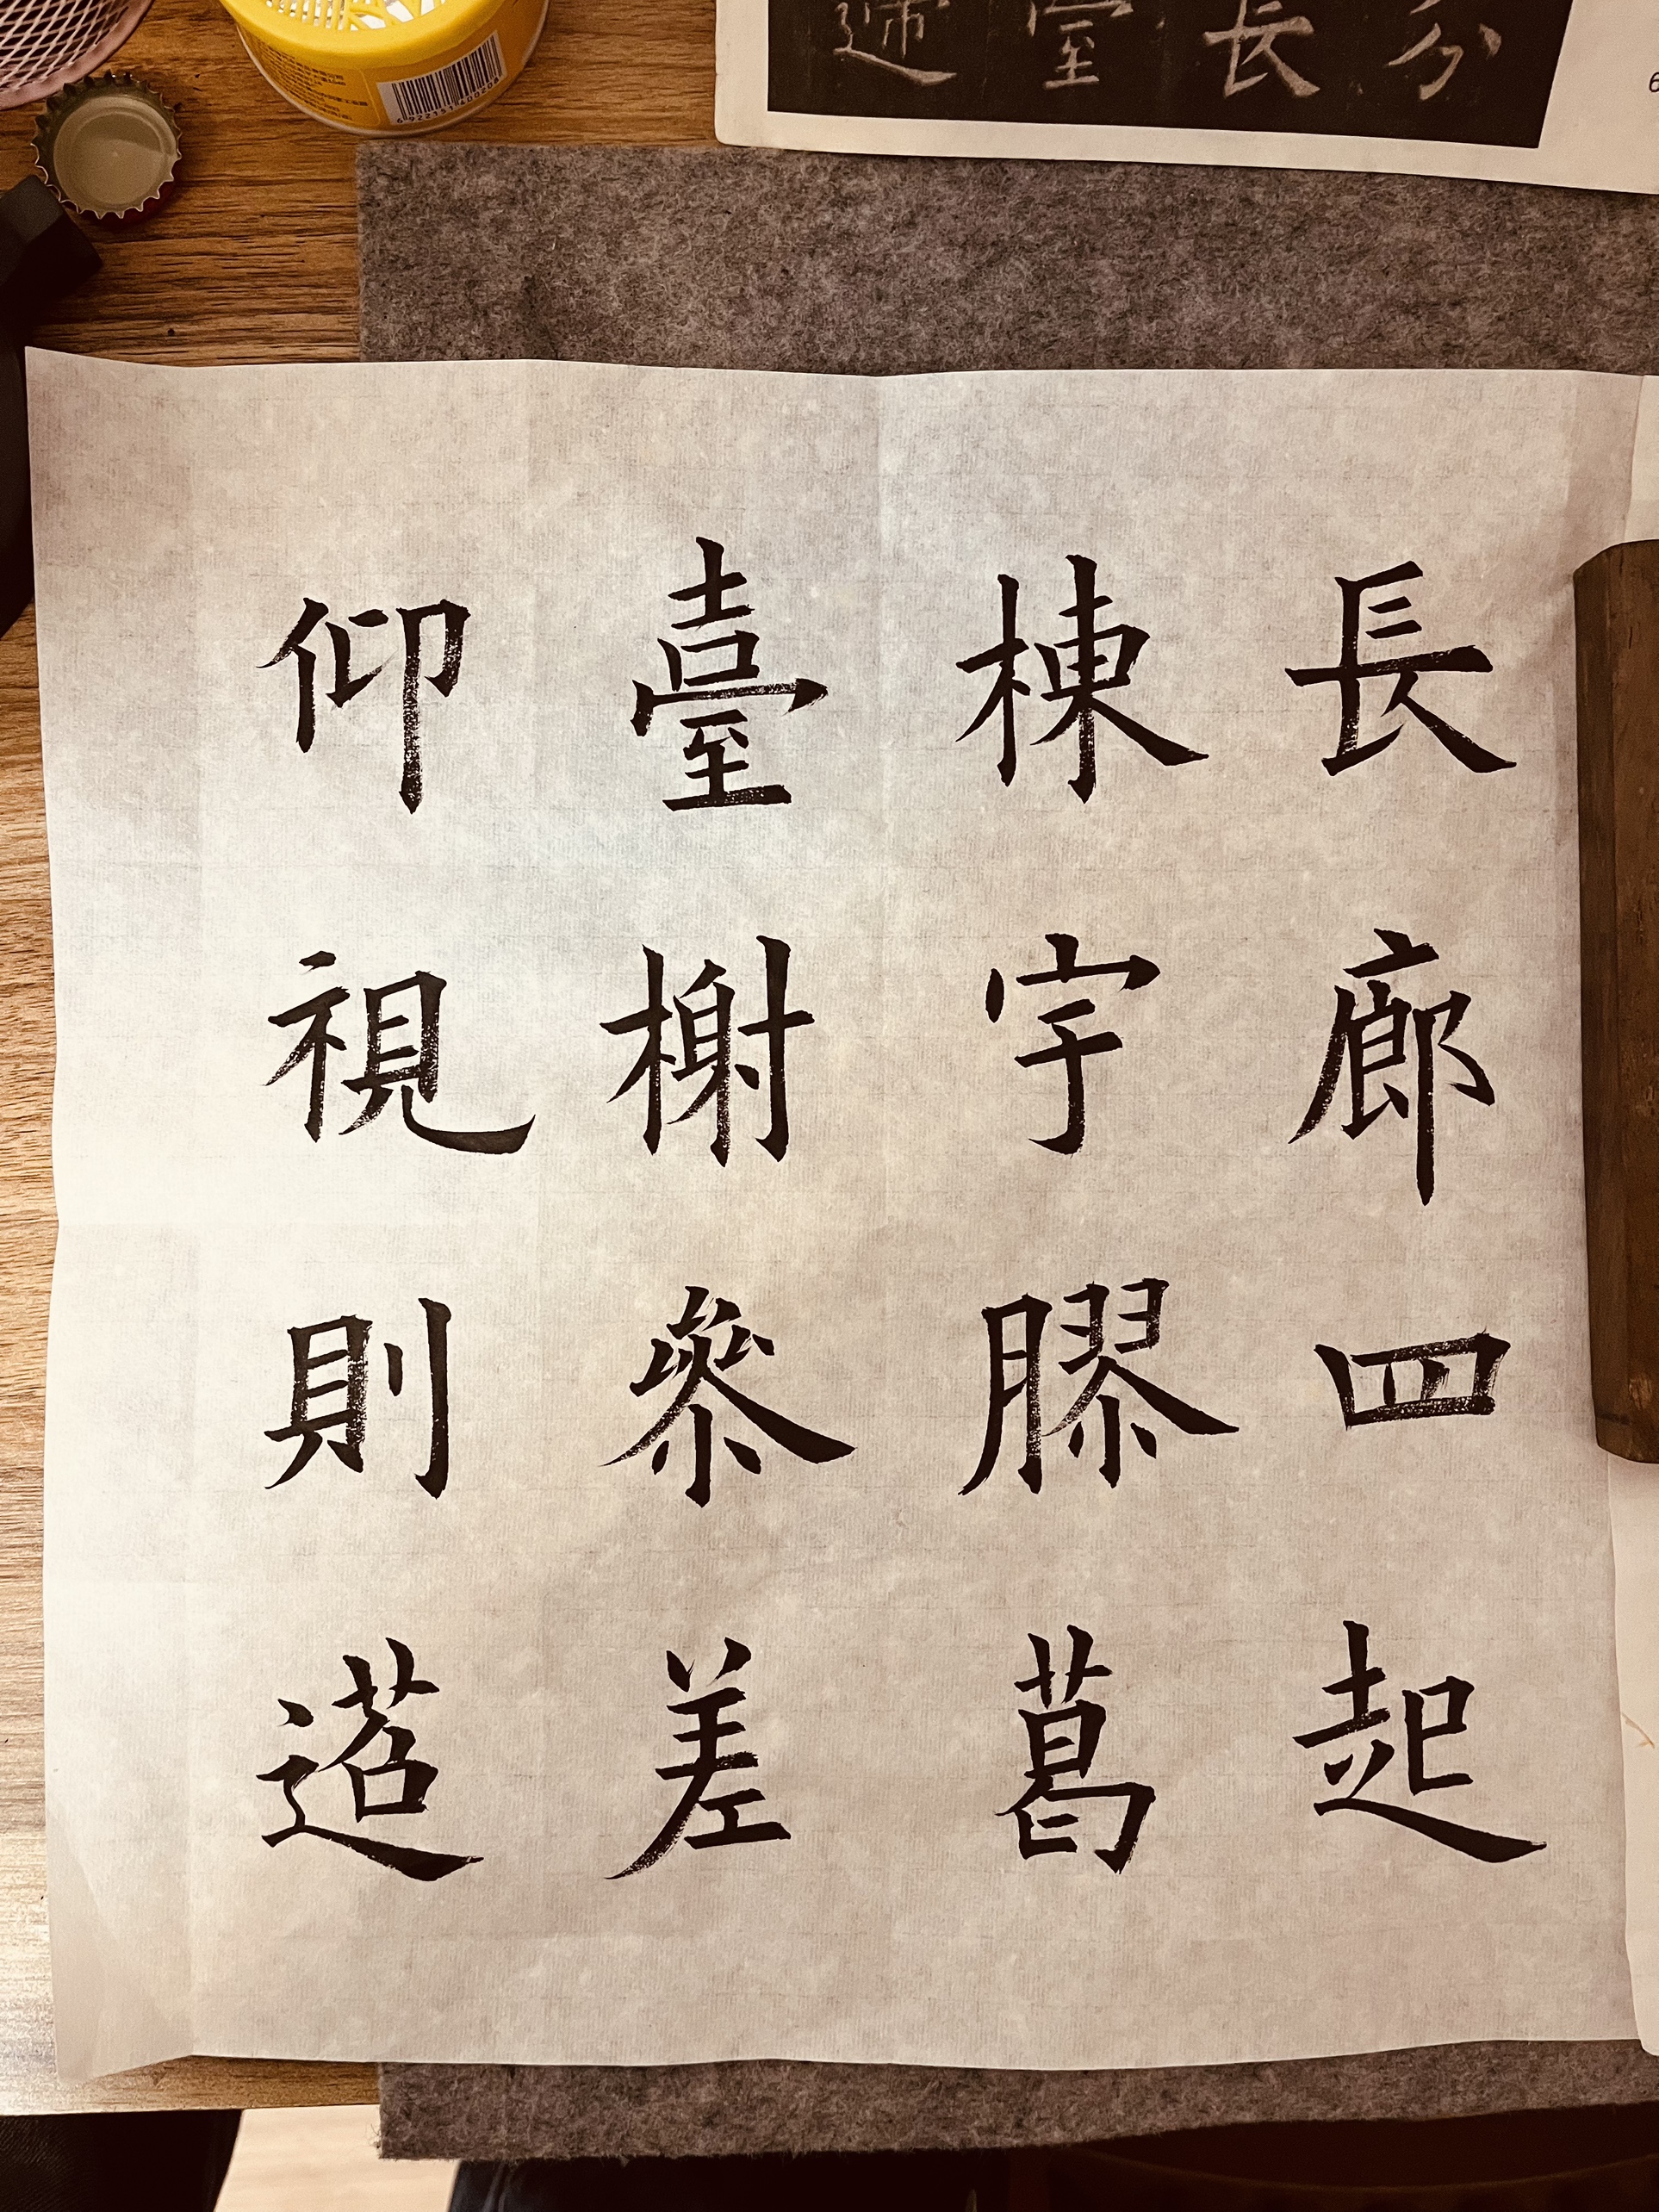 分
長
臺
遰
長廊四起
棟宇膠葛
臺榭參差
仰視則迢